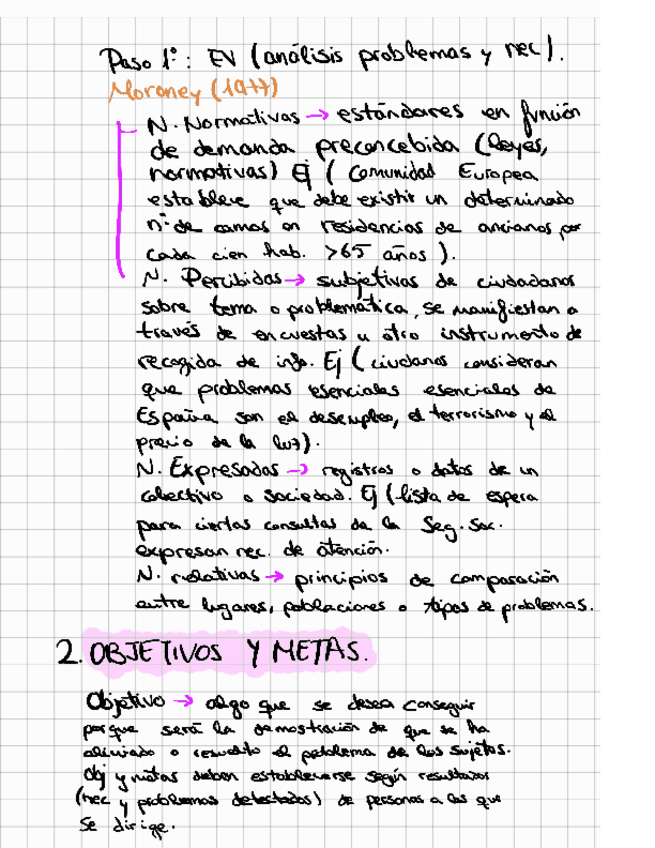 Paso 1º: EV (análisis problemas y nec).
Moroney (1977)
N. Normativas → estándares en función
de demanda preconcebida (leyes,
normativas) Ej ( Comunidad Europea
establece que debe existir un determinado
nº de camas en residencias de ancianos por
cada cien hab. >65 años ).
N. Percibidas → subjetivas de ciudadanos
sobre tema o problemática, se manifiestan a
través de encuestas u otro instrumento de
recogida de info. Ej ( ciudanos consideran
que problemas esenciales esenciales de
España son el desempleo, el terrorismo y el
precio de la luz).
N. Expresadas → registros o datos de un
colectivo o sociedad. Ej (lista de espera
para ciertas consultas de la Seg. Soc.
expresan nec. de atención.
N. relativas → principios de comparación
entre lugares, poblaciones o tipos de problemas.
2. OBJETIVOS Y METAS.
Objetivo → algo que se desea conseguir
porque será la demostración de que se ha
aliviado o resuelto el problema de los sujetos.
Obj y metas deben establecerse según resultados
(nec y problemas detectados) de personas a las que
se dirige.